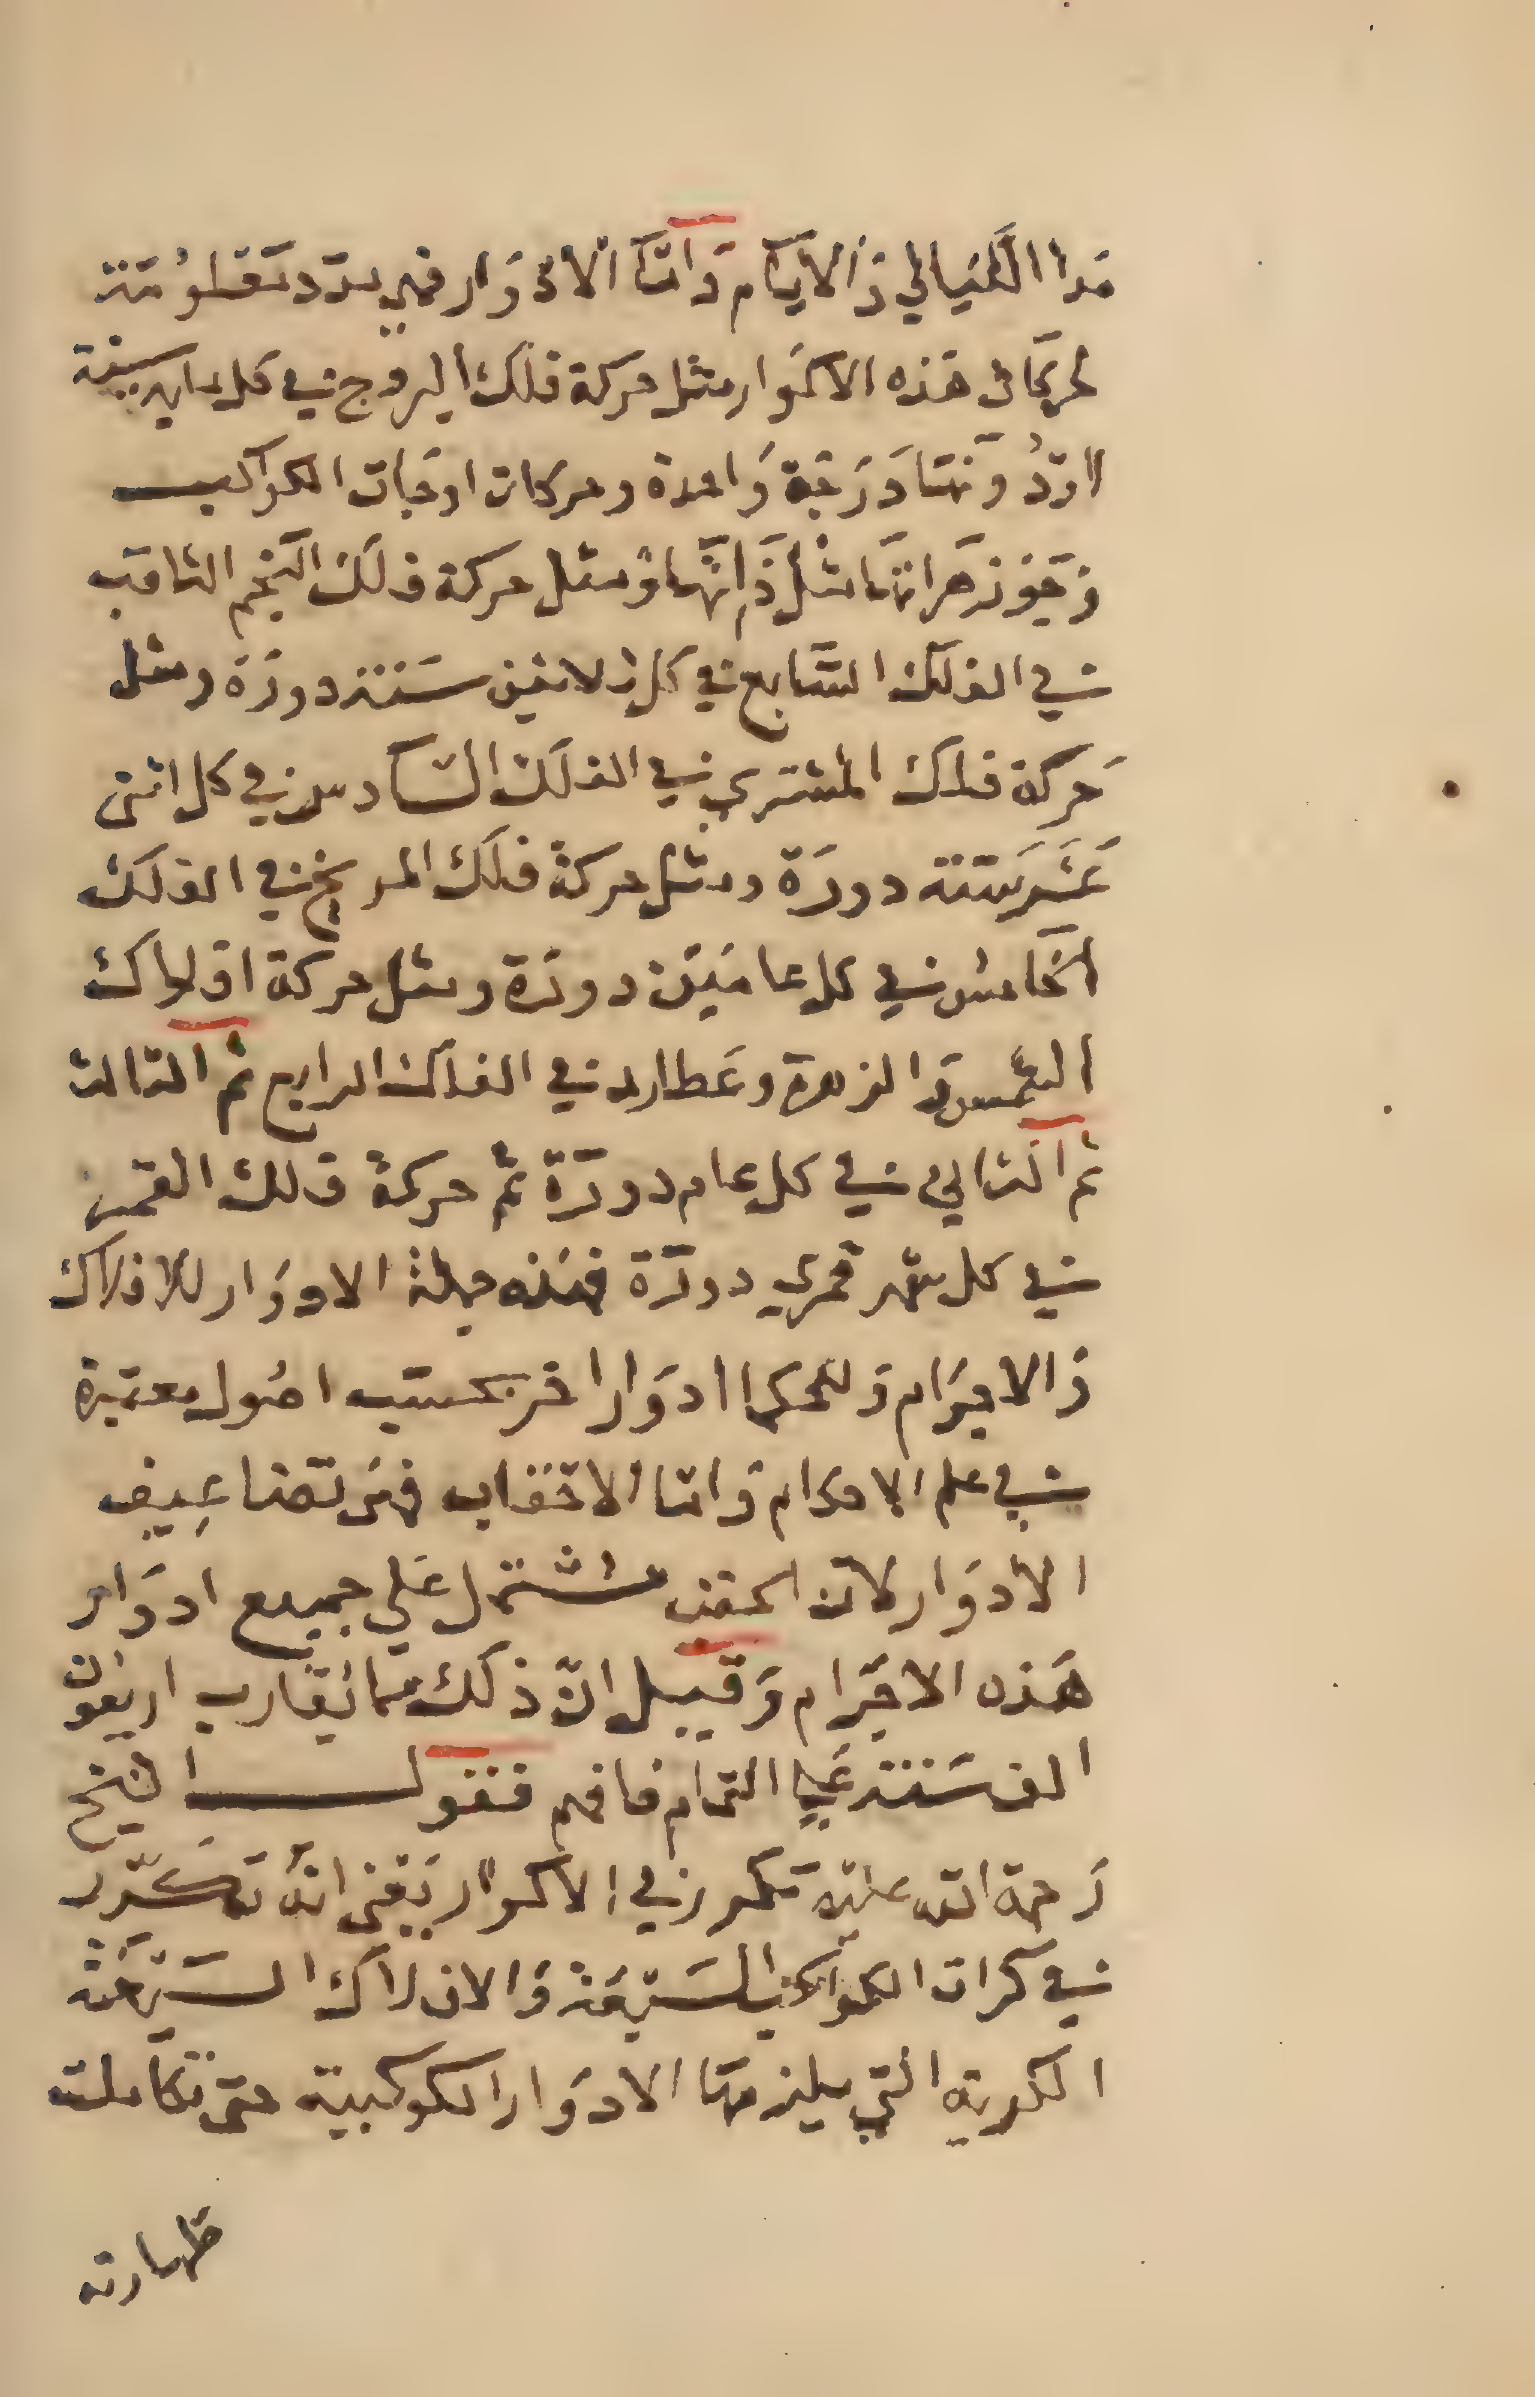 مدا الليالي والايام واما الادوار فهي مدد معلومة
لحركات هذه الاكوار مثل حركة فلك البروج في كل ماية سنة
او دونها درجة واحدة وحركات اوجات الكواكب
وجوزهراتها مثل ذاتها ومثل حركة فلك النجم الثاقب
في الفلك السابع في كل ثلاثين سنة دورة ومثل
حركة فلك المشتري في الفلك السادس في كل اثنى
عشر سنة دورة ومثل حركة فلك المريخ في الفلك
الخامس في كل عامين دورة ومثل حركة افلاك
الشمس والزهرة وعطارد في الفلك الرابع ثم الثالث
ثم الثاني في كل عام دورة ثم حركة فلك القمر
في كل شهر قمري دورة فهذه جملة الادوار للافلاك
والاجرام وللحكما ادوارا اخر بحسب اصول معتبرة
في علم الاحكام واما الاحقاب فهى تضاعيف
الادوار لان الحقب مشتمل على جميع ادوار
هذه الاجرام وقيل ان ذلك مما يقارب اربعون
الف سنة على التمام فافهم فقول الشيخ
رحمة الله عليه تكرر في الاكوار يعنى انه تكرر
في كرات الكواكب السبعة والافلاك السبعة
الكرية التي يلزمها الادوار الكوكبية حتى تكاملت
طهارته